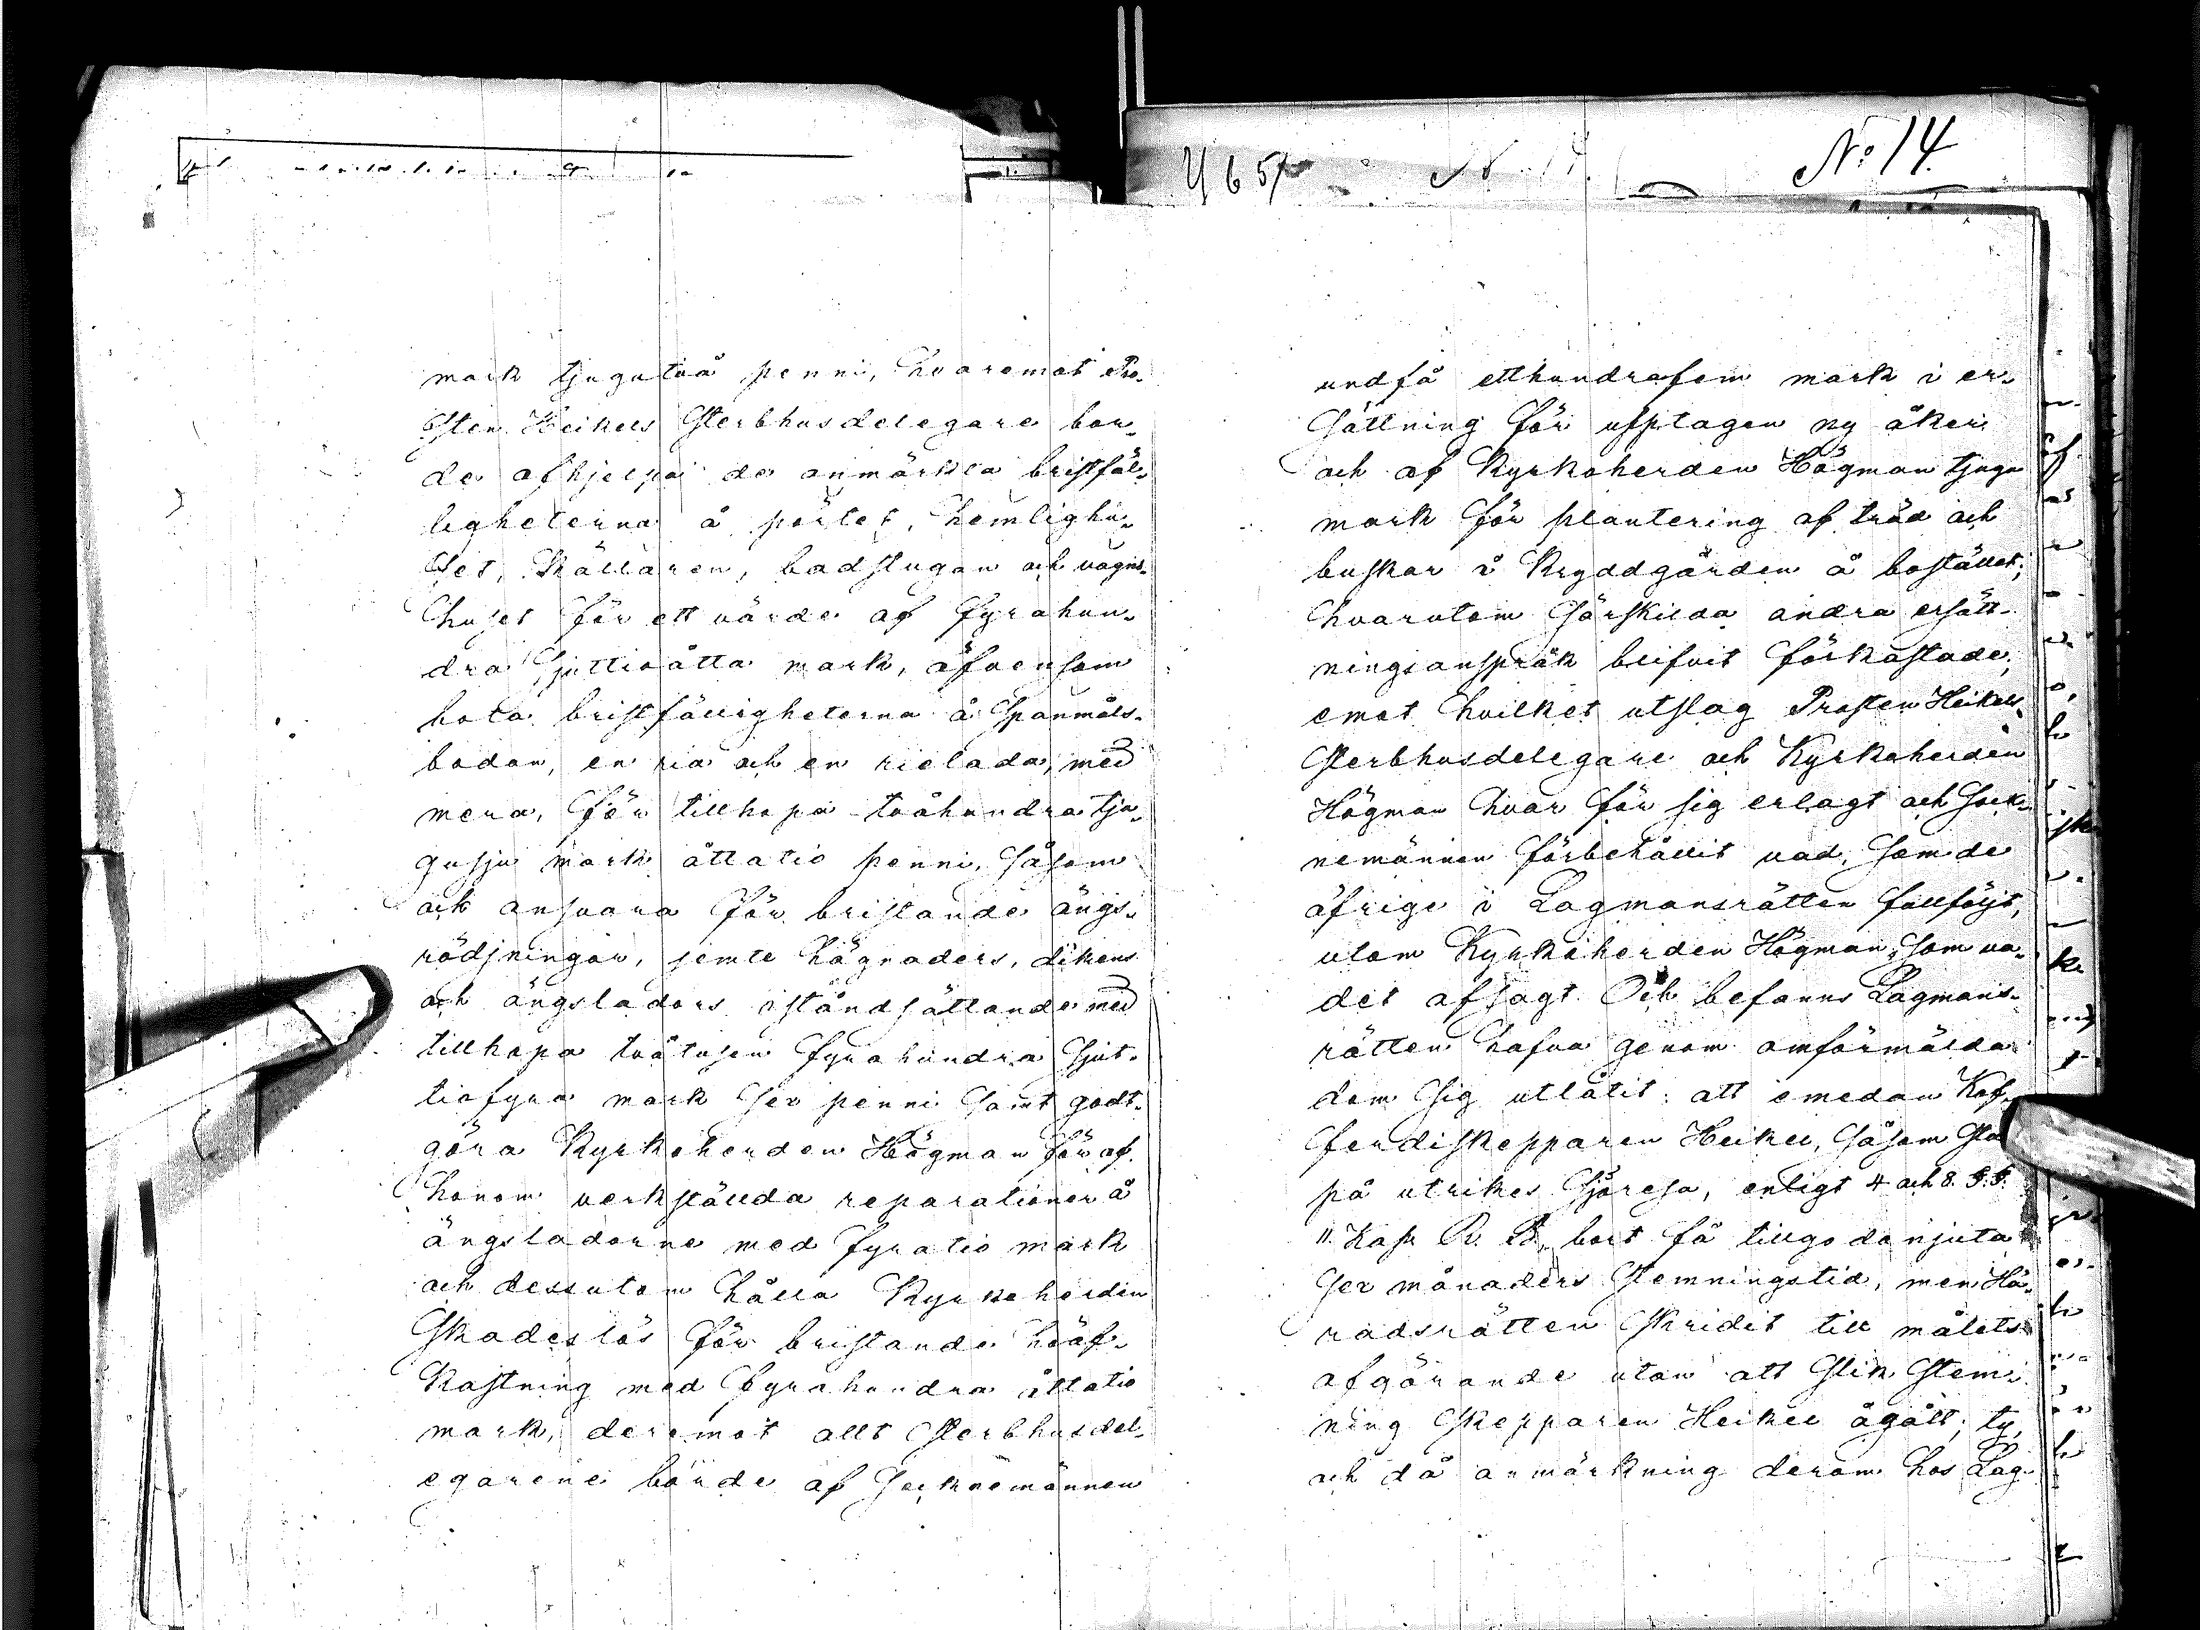 mark tjugutvå penni, hvaremot Pro-
sten Heikels sterbhusdelegare bor-
de afhjelpa de anmärkta bristfäl-
ligheterna å pörtet, hemlighu-
set, källaren, badstugan och vagns-
huset för ett värde af fyrahun-
dra sjuttioåtta mark, äfvensom
bota bristfälligheterna å spanmåls-
bodan, en ria och en rielada, med
mera, för tillhopa tvåhundra tju-
gusju mark åttatio penni, såsom
ock ansvara för bristande ängs-
rödjningar, jemte hägnaders, dikens
och ängsladors iståndsättande med
tillhopa tvåtusen fyrahundra sjut-
tiofyra mark sex penni samt godt-
göra Kyrkoherden Högman för af
honom verkstälda reparationer å
ängsladorne med fyratio mark
och dessutom hålla Kyrkoherden
skadeslös för bristande höaf-
kastning med fyrahundra åttatio
mark, deremot allt sterbhusdel-
egarene borde af Socknemännen
465
No 14
undfå etthundrafem mark i er-
sättning för upptagen ny åker
och af Kyrkoherden Högman tjugu
mark för plantering af träd och
buskar i Kryddgården å bostället;
hvarutom särskilda andra ersätt-
ningsanspråk blifvit förkastade;
emot hvilket utslag Prosten Heikels
sterbhusdelegare och Kyrkoherden
Högman hvar för sig erlagt och Sock-
nemännen förbehållit vad, som de
öfrige i Lagmansrätten fullföljt,
utom Kyrkoherden Högman, som va-
det afsagt. Och befanns Lagmans-
rätten hafva genom omförmälda
dom sig utlåtit: att emedan Kof-
ferdiskepparen Heikel, såsom sta
på utrikes sjöresa, enligt 4 och 8. §.§.
11. Kap. R. B., bort få tillgodonjuta
sex månaders stemningstid, men Hä-
radsrätten skridit till målets
afgörande utan att slik stem-
ning skepparen Heikel ågått; ty,
och då anmärkning derom hos Lag-